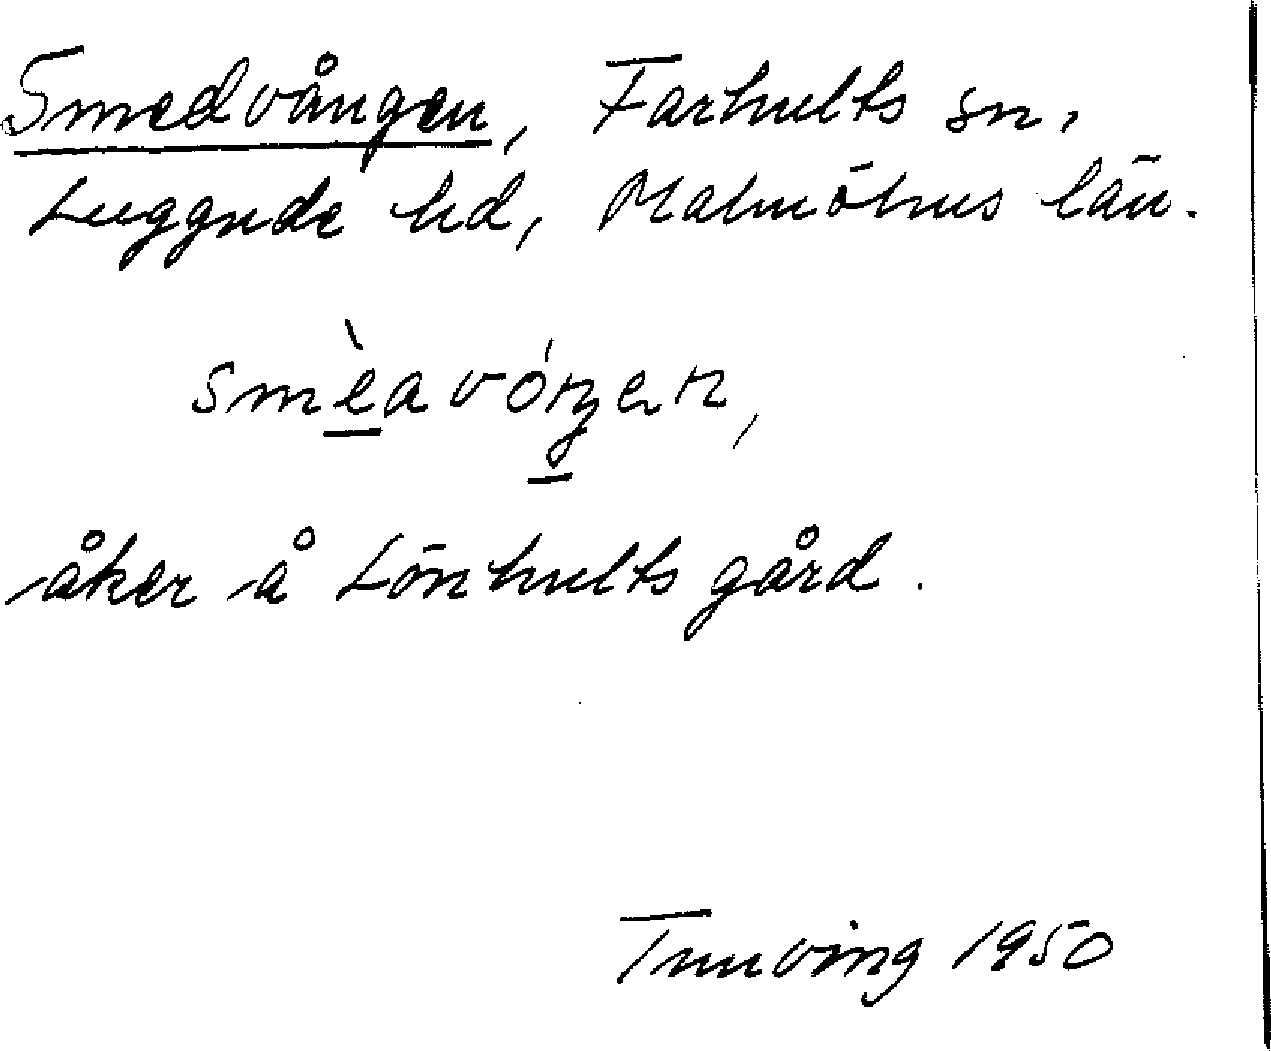 Smedvången, Farhults sn,
Luggude hd, Malmöhus län.
smèavóŋen,
åker å Lönhults gård.
Tunving 1950